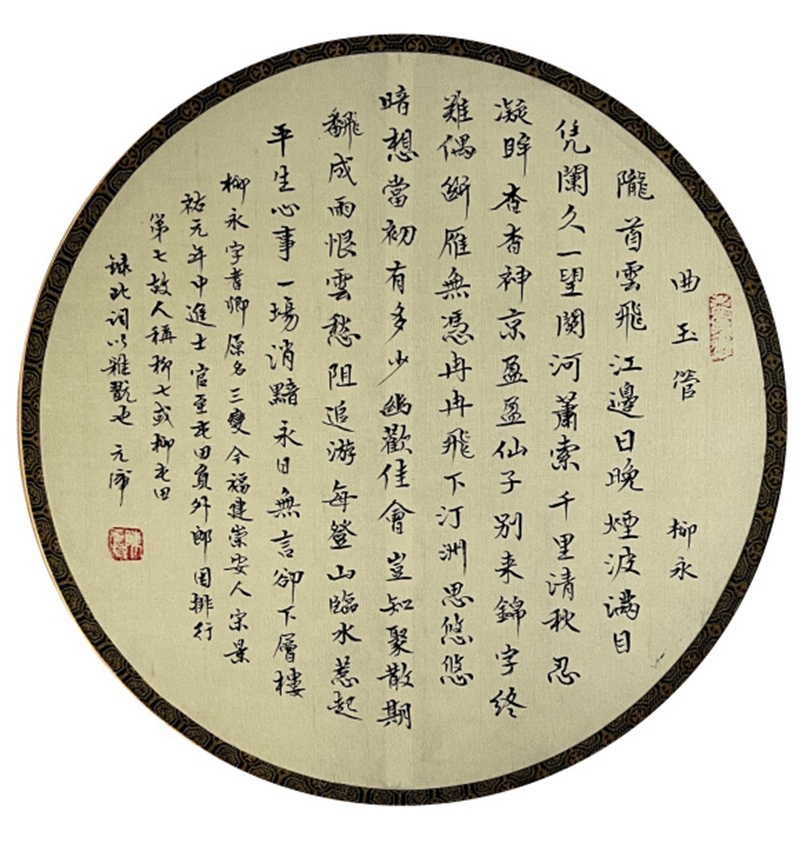 曲玉管 柳永
隴首雲飛江邊日晚煙波滿目
凭闌久一望関河蕭索千里清秋忍
凝眸杳杳神京盈盈仙子別来錦字終
難偶斷雁無憑冉冉飛下汀洲思悠悠
暗想當初有多少幽歡佳會豈知聚散期
翻成雨恨雲愁阻追游每登山臨水惹起
平生心事一場消黯永日無言卻下層樓
柳永字耆卿原名三變今福建崇安人宋景
祐元年中進士官至屯田員外郎因排行
第七故人稱柳七或柳屯田
錄此詞以雅翫也元